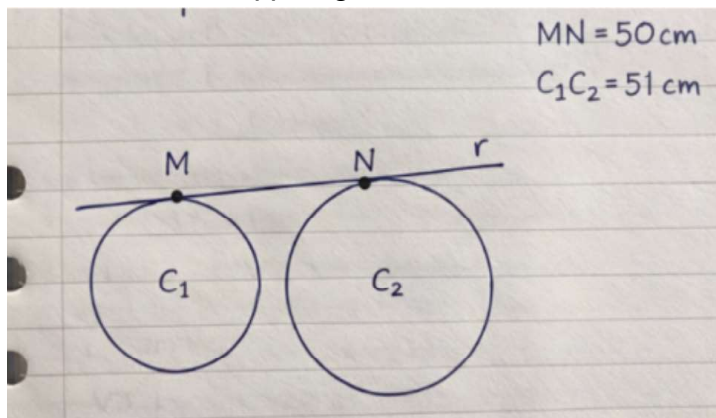 MN = 50 cm
C₁C₂ = 51 cm
M
N
r
C₁
C₂